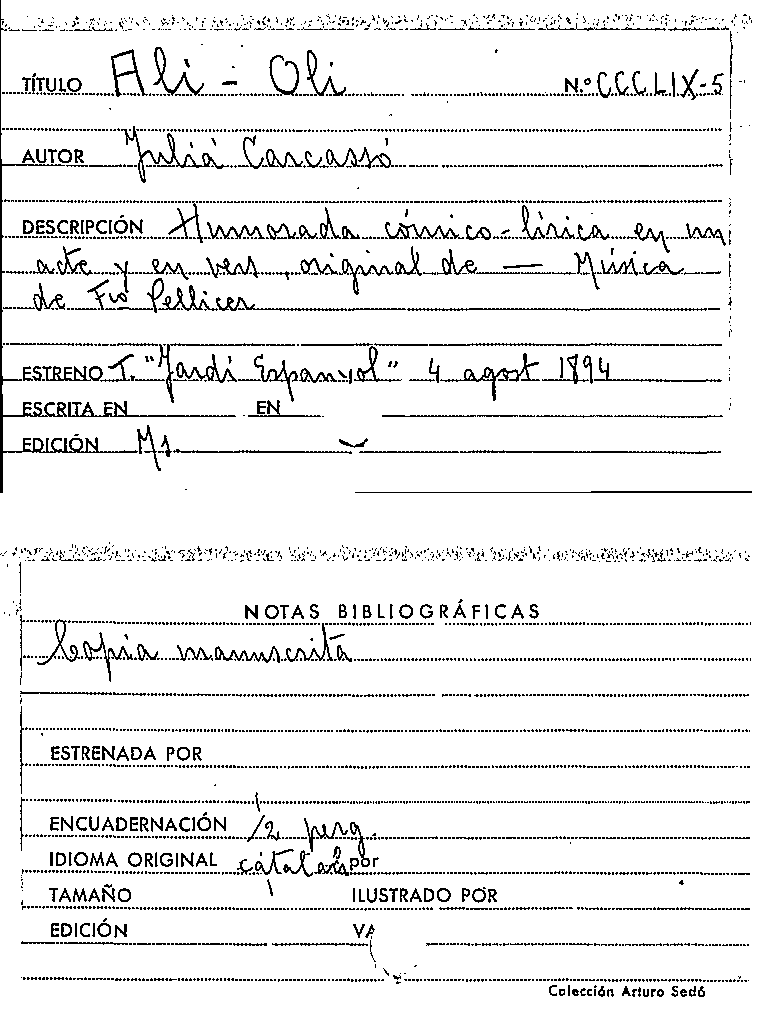 TÍTULO Ali - Oli N.º CCCLIX-5
AUTOR Juliá Carcassó
DESCRIPCIÓN Humorada cómico-lírica en un
acte y en vers, original de — Música
de Fco Pellicer
ESTRENO T. "Jardí Espanyol" 4 agost 1894
ESCRITA EN EN
EDICIÓN Ms.
NOTAS BIBLIOGRÁFICAS
Copia manuscrita
ESTRENADA POR
ENCUADERNACIÓN 1/2 perg.
IDIOMA ORIGINAL català por
TAMAÑO ILUSTRADO POR
EDICIÓN
Colección Arturo Sedó